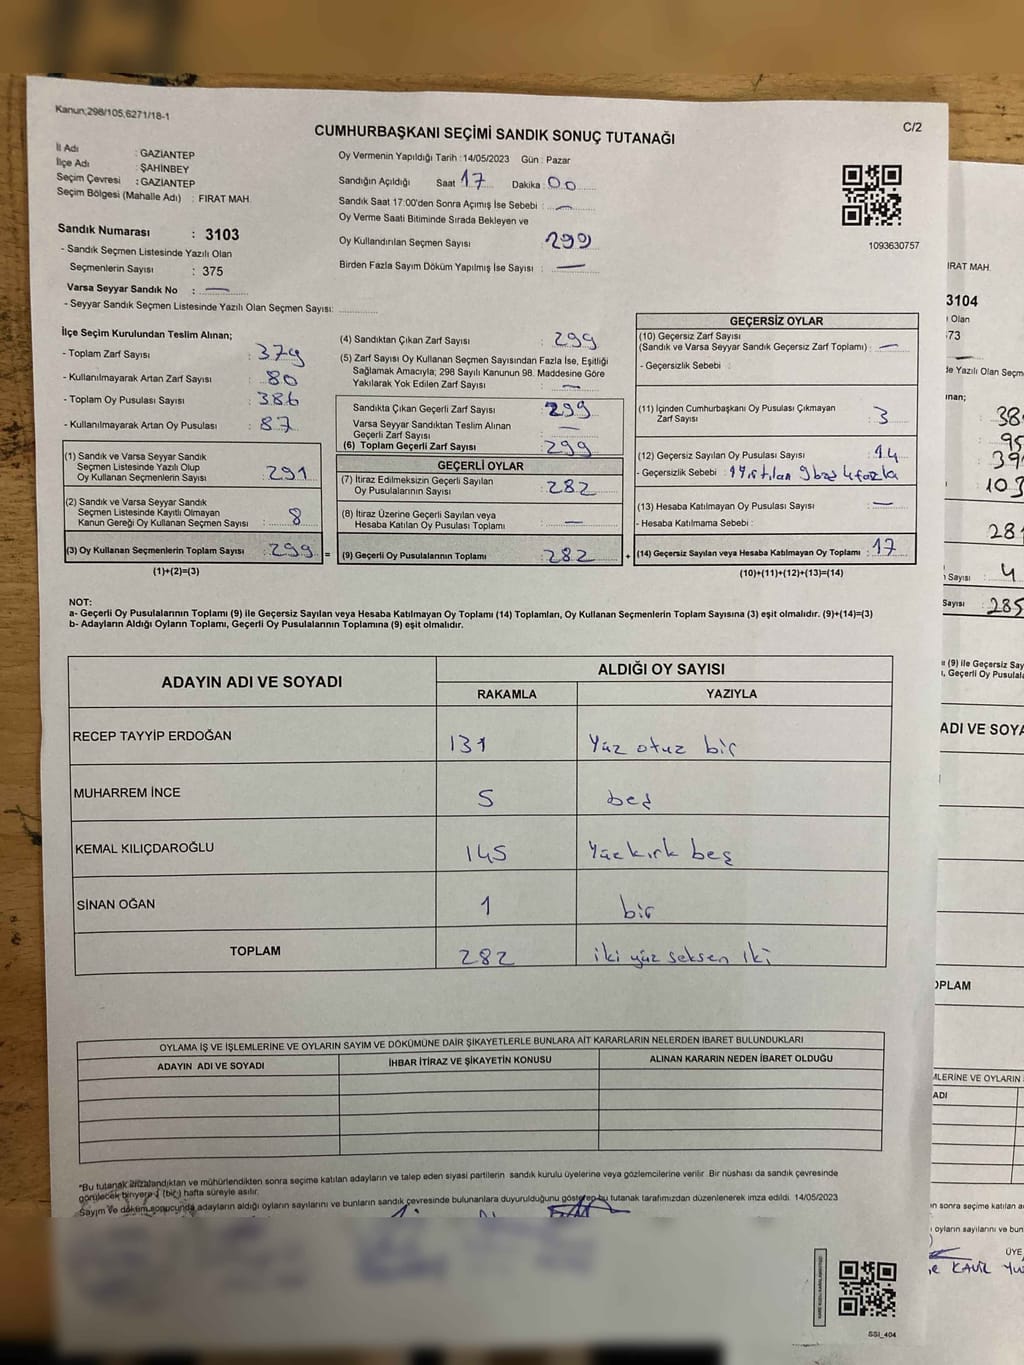 Kanun;298/105,6271/18-1
C/2
CUMHURBAŞKANI SEÇİMİ SANDIK SONUÇ TUTANAĞI
İl Adı : GAZİANTEP
İlçe Adı : ŞAHİNBEY
Seçim Çevresi : GAZİANTEP
Seçim Bölgesi (Mahalle Adı) : FIRAT MAH.
Sandık Numarası : 3103
- Sandık Seçmen Listesinde Yazılı Olan
Seçmenlerin Sayısı : 375
Varsa Seyyar Sandık No : —
- Seyyar Sandık Seçmen Listesinde Yazılı Olan Seçmen Sayısı:
Oy Vermenin Yapıldığı Tarih :14/05/2023 Gün : Pazar
Sandığın Açıldığı Saat 17 Dakika : 00
Sandık Saat 17:00'den Sonra Açımış İse Sebebi : —
Oy Verme Saati Bitiminde Sırada Bekleyen ve
Oy Kullandırılan Seçmen Sayısı 299
Birden Fazla Sayım Döküm Yapılmış İse Sayısı : —
1093630757
İlçe Seçim Kurulundan Teslim Alınan;
- Toplam Zarf Sayısı : 379
- Kullanılmayarak Artan Zarf Sayısı : 80
- Toplam Oy Pusulası Sayısı : 386
- Kullanılmayarak Artan Oy Pusulası : 87
(1) Sandık ve Varsa Seyyar Sandık
Seçmen Listesinde Yazılı Olup
Oy Kullanan Seçmenlerin Sayısı : 291
(2) Sandık ve Varsa Seyyar Sandık
Seçmen Listesinde Kayıtlı Olmayan
Kanun Gereği Oy Kullanan Seçmen Sayısı : 8
(3) Oy Kullanan Seçmenlerin Toplam Sayısı : 299 =
(1)+(2)=(3)
(4) Sandıktan Çıkan Zarf Sayısı : 299
(5) Zarf Sayısı Oy Kullanan Seçmen Sayısından Fazla İse, Eşitliği
Sağlamak Amacıyla; 298 Sayılı Kanunun 98. Maddesine Göre
Yakılarak Yok Edilen Zarf Sayısı : —
Sandıkta Çıkan Geçerli Zarf Sayısı : 299
Varsa Seyyar Sandıktan Teslim Alınan
Geçerli Zarf Sayısı : —
(6) Toplam Geçerli Zarf Sayısı : 299
GEÇERLİ OYLAR
(7) İtiraz Edilmeksizin Geçerli Sayılan
Oy Pusulalarının Sayısı : 282
(8) İtiraz Üzerine Geçerli Sayılan veya
Hesaba Katılan Oy Pusulası Toplamı : —
(9) Geçerli Oy Pusulalarının Toplamı : 282 +
GEÇERSİZ OYLAR
(10) Geçersiz Zarf Sayısı
(Sandık ve Varsa Seyyar Sandık Geçersiz Zarf Toplamı) : —
- Geçersizlik Sebebi :
(11) İçinden Cumhurbaşkanı Oy Pusulası Çıkmayan
Zarf Sayısı : 3
(12) Geçersiz Sayılan Oy Pusulası Sayısı : 14
- Geçersizlik Sebebi :
(13) Hesaba Katılmayan Oy Pusulası Sayısı : —
- Hesaba Katılmama Sebebi :
(14) Geçersiz Sayılan veya Hesaba Katılmayan Oy Toplamı : 17
(10)+(11)+(12)+(13)=(14)
NOT:
a- Geçerli Oy Pusulalarının Toplamı (9) ile Geçersiz Sayılan veya Hesaba Katılmayan Oy Toplamı (14) Toplamları, Oy Kullanan Seçmenlerin Toplam Sayısına (3) eşit olmalıdır. (9)+(14)=(3)
b- Adayların Aldığı Oyların Toplamı, Geçerli Oy Pusulalarının Toplamına (9) eşit olmalıdır.
ADAYIN ADI VE SOYADI
ALDIĞI OY SAYISI
RAKAMLA YAZIYLA
RECEP TAYYİP ERDOĞAN 131 Yüz otuz bir
MUHARREM İNCE 5 beş
KEMAL KILIÇDAROĞLU 145 Yüzkırk beş
SİNAN OĞAN 1 bir
TOPLAM 282 iki yüz seksen iki
OYLAMA İŞ VE İŞLEMLERİNE VE OYLARIN SAYIM VE DÖKÜMÜNE DAİR ŞİKAYETLERLE BUNLARA AİT KARARLARIN NELERDEN İBARET BULUNDUKLARI
ADAYIN ADI VE SOYADI İHBAR İTİRAZ VE ŞİKAYETİN KONUSU ALINAN KARARIN NEDEN İBARET OLDUĞU
*Bu tutanak imzalandıktan ve mühürlendikten sonra seçime katılan adayların ve talep eden siyasi partilerin sandık kurulu üyelerine veya gözlemcilerine verilir. Bir nüshası da sandık çevresinde
görülecek biryere 1 (bir) hafta süreyle asılır.
Sayım ve döküm sonucunda adayların aldığı oyların sayılarını ve bunların sandık çevresinde bulunanlara duyurulduğunu gösteren bu tutanak tarafımızdan düzenlenerek imza edildi. 14/05/2023
SSI_404
IRAT MAH.
3104
Olan
73
de Yazılı Olan Seçm
nan;
95
103
4
Sayısı
Sayısı : 285
(9) ile Geçersiz Say
, Geçerli Oy Pusulala
ADI VE SOYA
OPLAM
MLERİNE VE OYLARIN
ADI
n sonra seçime katılan a
oyların sayılarını ve bun
ÜYE
KAVİL